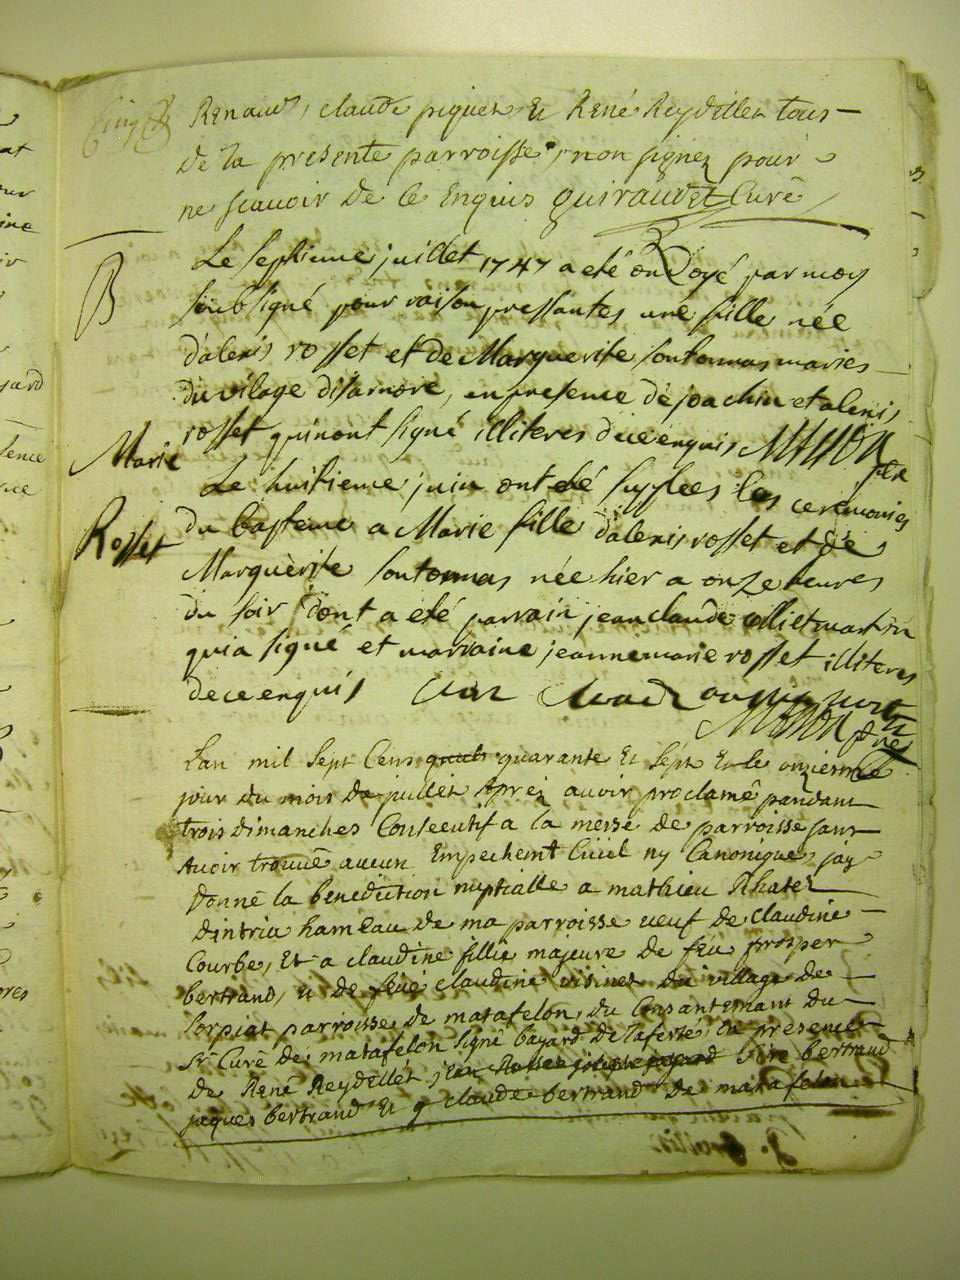 Renaud, claude piquet Et René Reydellet tous
de la presente parroisse, non signez pour
ne scauoir de ce Enquis Guiraudet Curé
B
Le septieme juillet 1747 a eté ondoyé par moy
soubsigné pour raison pressantes une fille née
d'alexis rosset et de Marguerite sontonnas maries
du vilage disarnore, en presence de joachin et alexis
rosset qui nont signé illiteres de ce enquis
Marie
Rosset
Le huitieme juin ont eté supplees les ceremonies
du bapteme a Marie fille d'alexis rosset et de
Marguèrite sontonnas née hier a onze heures
du soir dont a eté parrain jean claude colliet martin
qui a signé et marraine jeanne marie rosset illiteres
de ce enquis
Lan mil sept Cens quarante Et sept Et le onzieme
jour du mois de juillet Aprez auoir proclamé pandant
trois dimanches Consecutif a la messe de parroisse sans
Auoir trouué aucun Empechemt Ciuil ny Canonique, jay
Donné la benediction nuptialle a mathieu Rhatez
dintria hameau de ma parroisse ueuf de claudine
Courbe, Et a claudine fillie majeure de feu prosper
bertrand, et de feüe claudine visinet du village de
Sorpiat parroisse de matafelon, du Consantemant du
Sr Curé de matafelon signé bayard De laferté, En presence
de René Reydellet, bertrand
jaques bertrand Et claude bertrand De matafelon